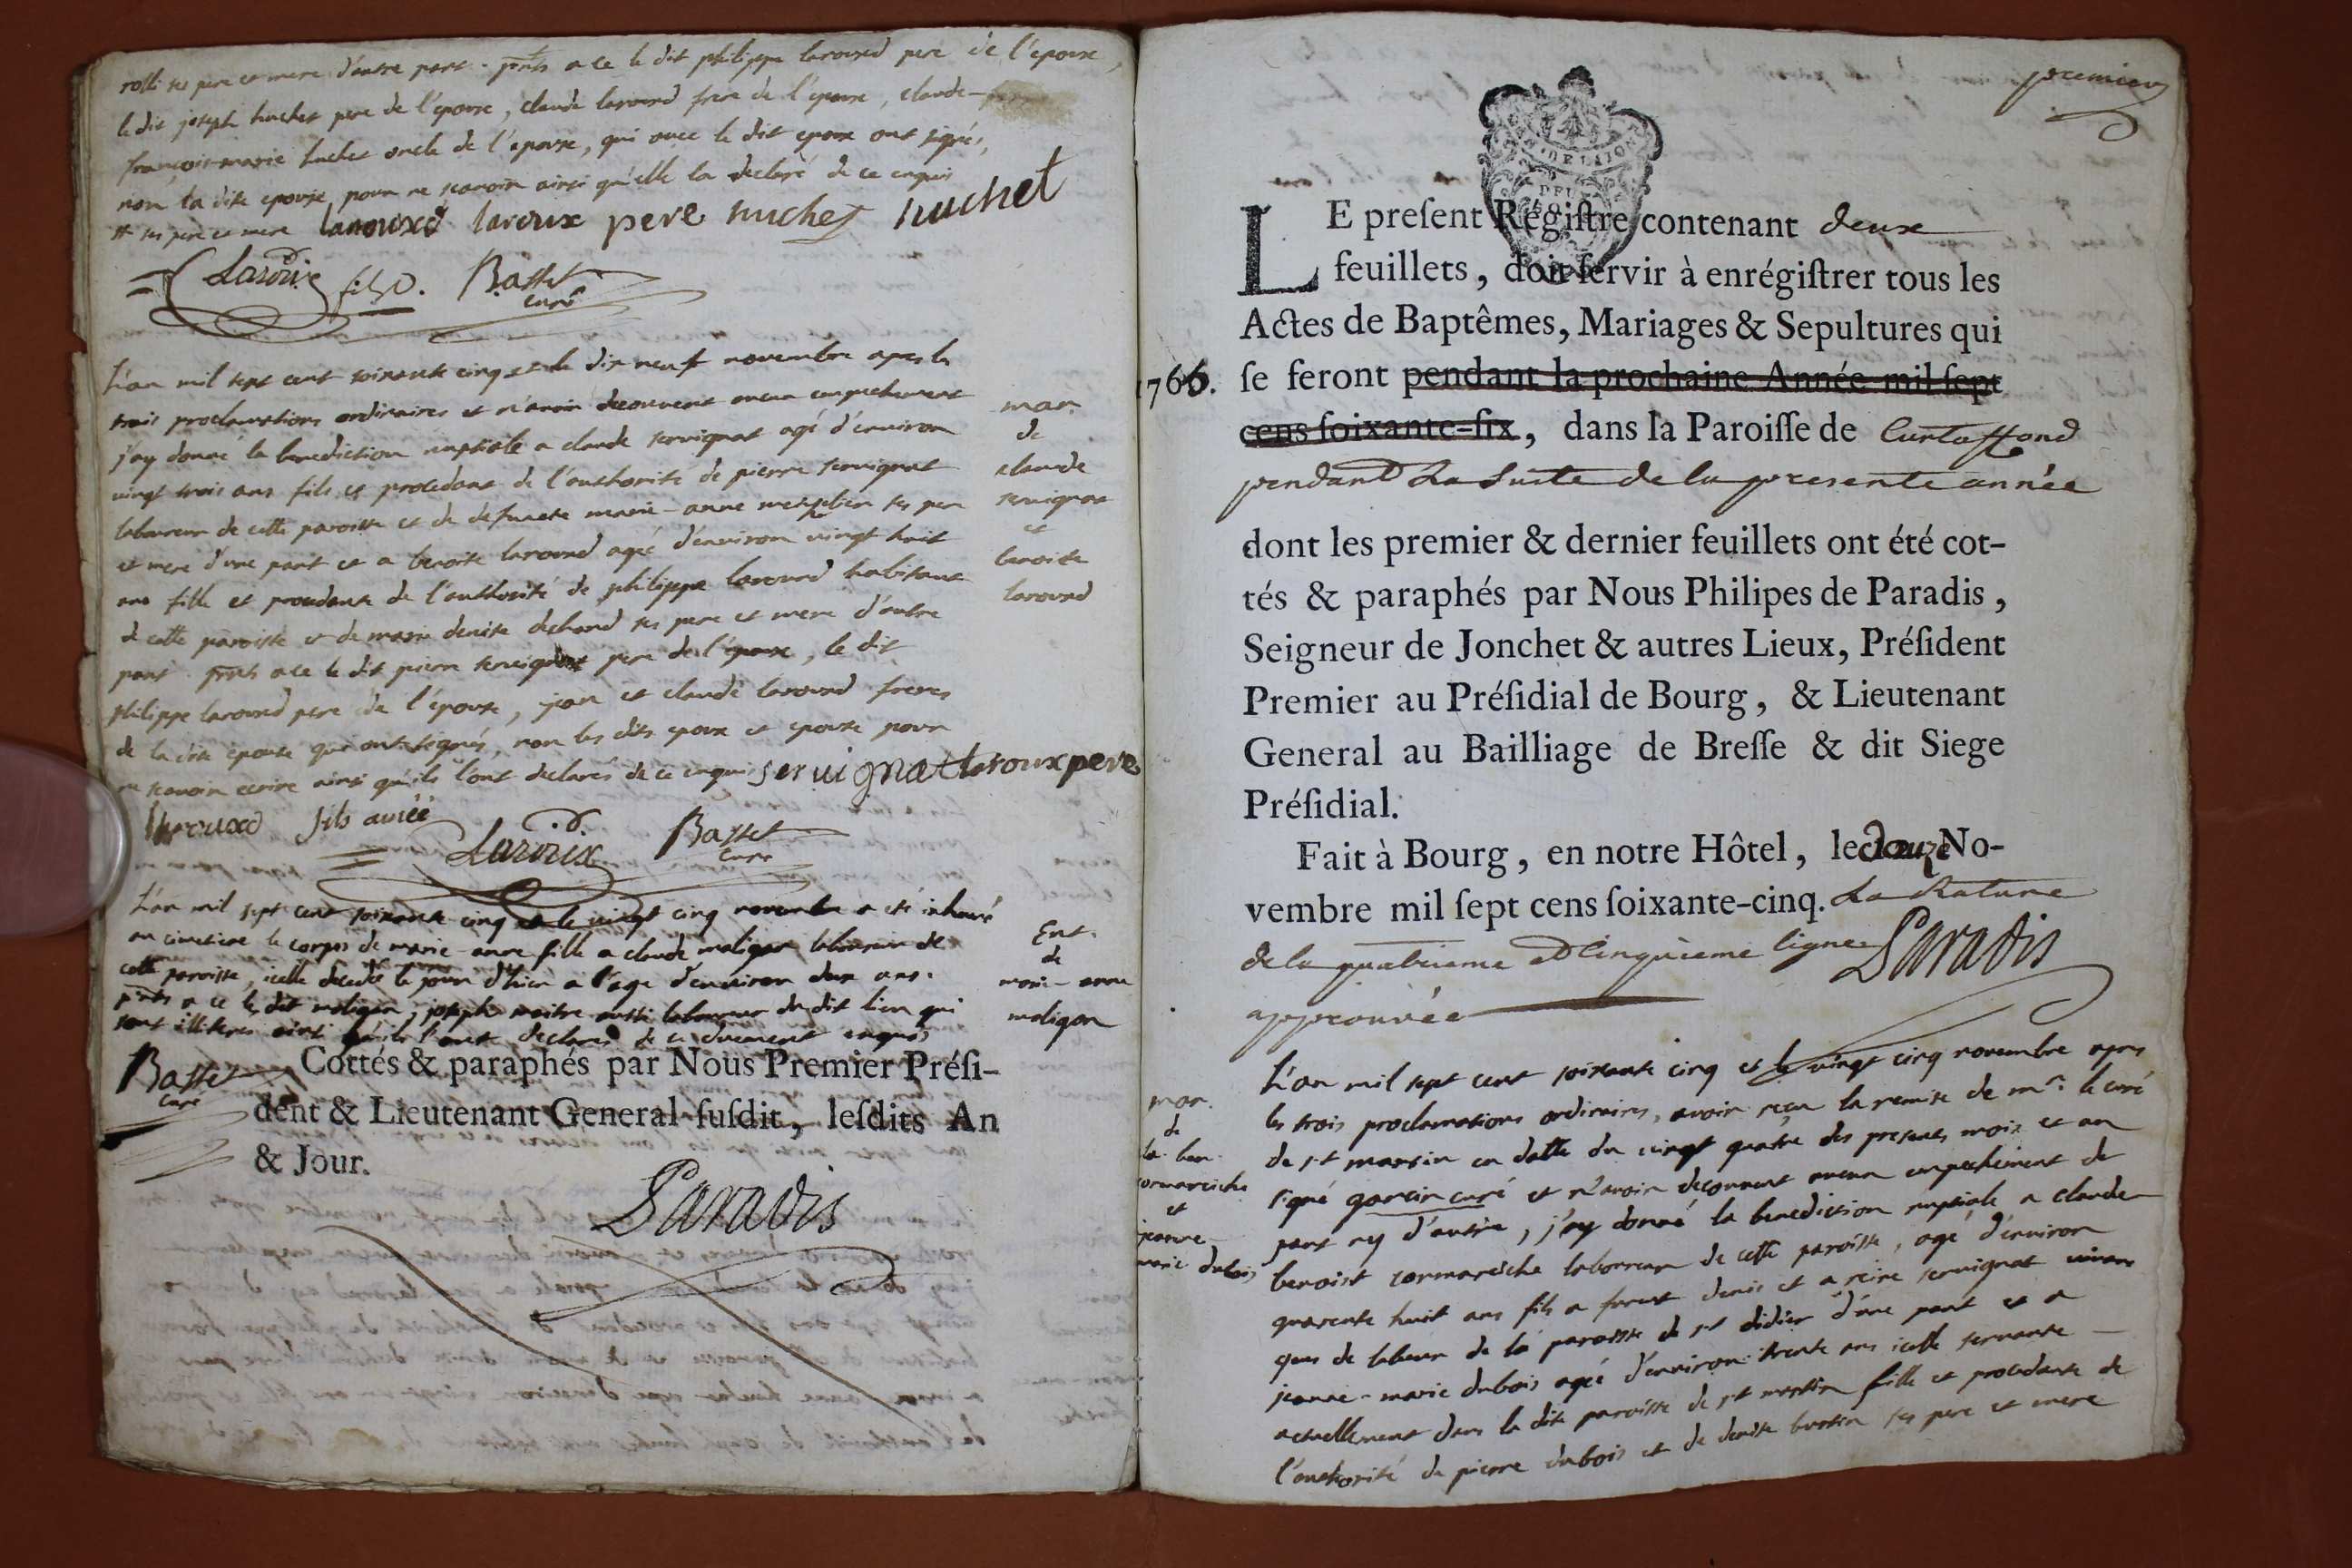 rolli ses pere et mere d'autre part. pnts a ce le dit philippe laround pere de l'epoux,
le dit joseph huchet pere de l'epouse, claude laround frere de l'epoux, claude-
françois-marie huchet oncle de l'epouse, qui avec le dit epoux ont signés,
non la dite epouse pour ne scavoir ainsi qu'elle la declaré de ce enquis
ses pere et mere larouxd laroux pere huchet huchet
Laroux fils. Basset
curé
L'an mil sept cent soixante cinq et le dix neuf novembre apres les
trois proclamations ordinaires et n'avoir decouvert aucun empechement
j'ay donné la benediction nuptiale a claude servignat agé d'environ
vingt trois ans fils et procedant de l'authorité de pierre servignat
laboureur de cette paroisse et de defuncte marie-anne ses pere
et mere d'une part et a benoite laround ageé d'environ vingt huit
ans fille et procedante de l'authorité de philippe laround habitant
de cette paroisse et de marie denise dechand ses pere et mere d'autre
part. pnts a ce le dit pierre servignat pere de l'epoux, le dit
philippe laround pere de l'epouse, jean et claude laround freres
de la dite epouse qui ont signés, non les dits epoux et epouse pour
ne scavoir ecrire ainsi qu'ils l'ont declarés de ce enquis servignat laroux pere
larouxd fils
Laroux Basset
curé
mar.
de
claude
servignat
et
benoite
laround
L'an mil sept cent soixante cinq et le vingt cinq novembre a eté inhumé
au cimetiere le corps de marie-anne fille a claude maligon laboureur de
cette paroisse, icelle decedée le jour d'hier a l'age d'environ deux ans.
pnts a ce le dit maligon, joseph maitre aussi laboureur du dit lieu qui
sont illiteres ainsi qu'ils l'ont declarés de ce duement enquis
Ent.
de
marie-anne
maligon
Basset
curé
Cottés & paraphés par Nous Premier Prési-
dent & Lieutenant General susdit, lesdits An
& Jour.
Paradis
premier
LE present Régistre contenant deux
feuillets, doit servir à enrégistrer tous les
Actes de Baptêmes, Mariages & Sepultures qui
1766. se feront pendant la prochaine Année mil sept
cens soixante-six, dans la Paroisse de Curtaffond
pendant La Suite de la presente année
dont les premier & dernier feuillets ont été cot-
tés & paraphés par Nous Philipes de Paradis,
Seigneur de Jonchet & autres Lieux, Président
Premier au Présidial de Bourg, & Lieutenant
General au Bailliage de Bresse & dit Siege
Présidial.
Fait à Bourg, en notre Hôtel, le douze No-
vembre mil sept cens soixante-cinq. La Rature
de la quatrieme et Cinquieme ligne
approuvée
Paradis
mar.
de
ben.
cormareiche
et
jeanne-
marie dubois
L'an mil sept cent soixante cinq et le vingt cinq novembre apres
les trois proclamations ordinaires, avoir reçu la remise de mr. le curé
de st martin en datte du vingt quatre des presents mois et an
signé garcin curé et n'avoir decouvert aucun empechement de
part ny d'autre, j'ay donné la benediction nuptiale a claude
benoist cormareiche laboureur de cette paroisse, agé d'environ
quarente huit ans fils a denis et a reine servignat vivans
gens de labeur de la paroisse de st didier d'une part et a
jeanne-marie dubois ageé d'environ trente ans icelle servante
actuellement dans la dite paroisse de st martin fille et procedante de
l'authorité de pierre dubois et de denise ses pere et mere